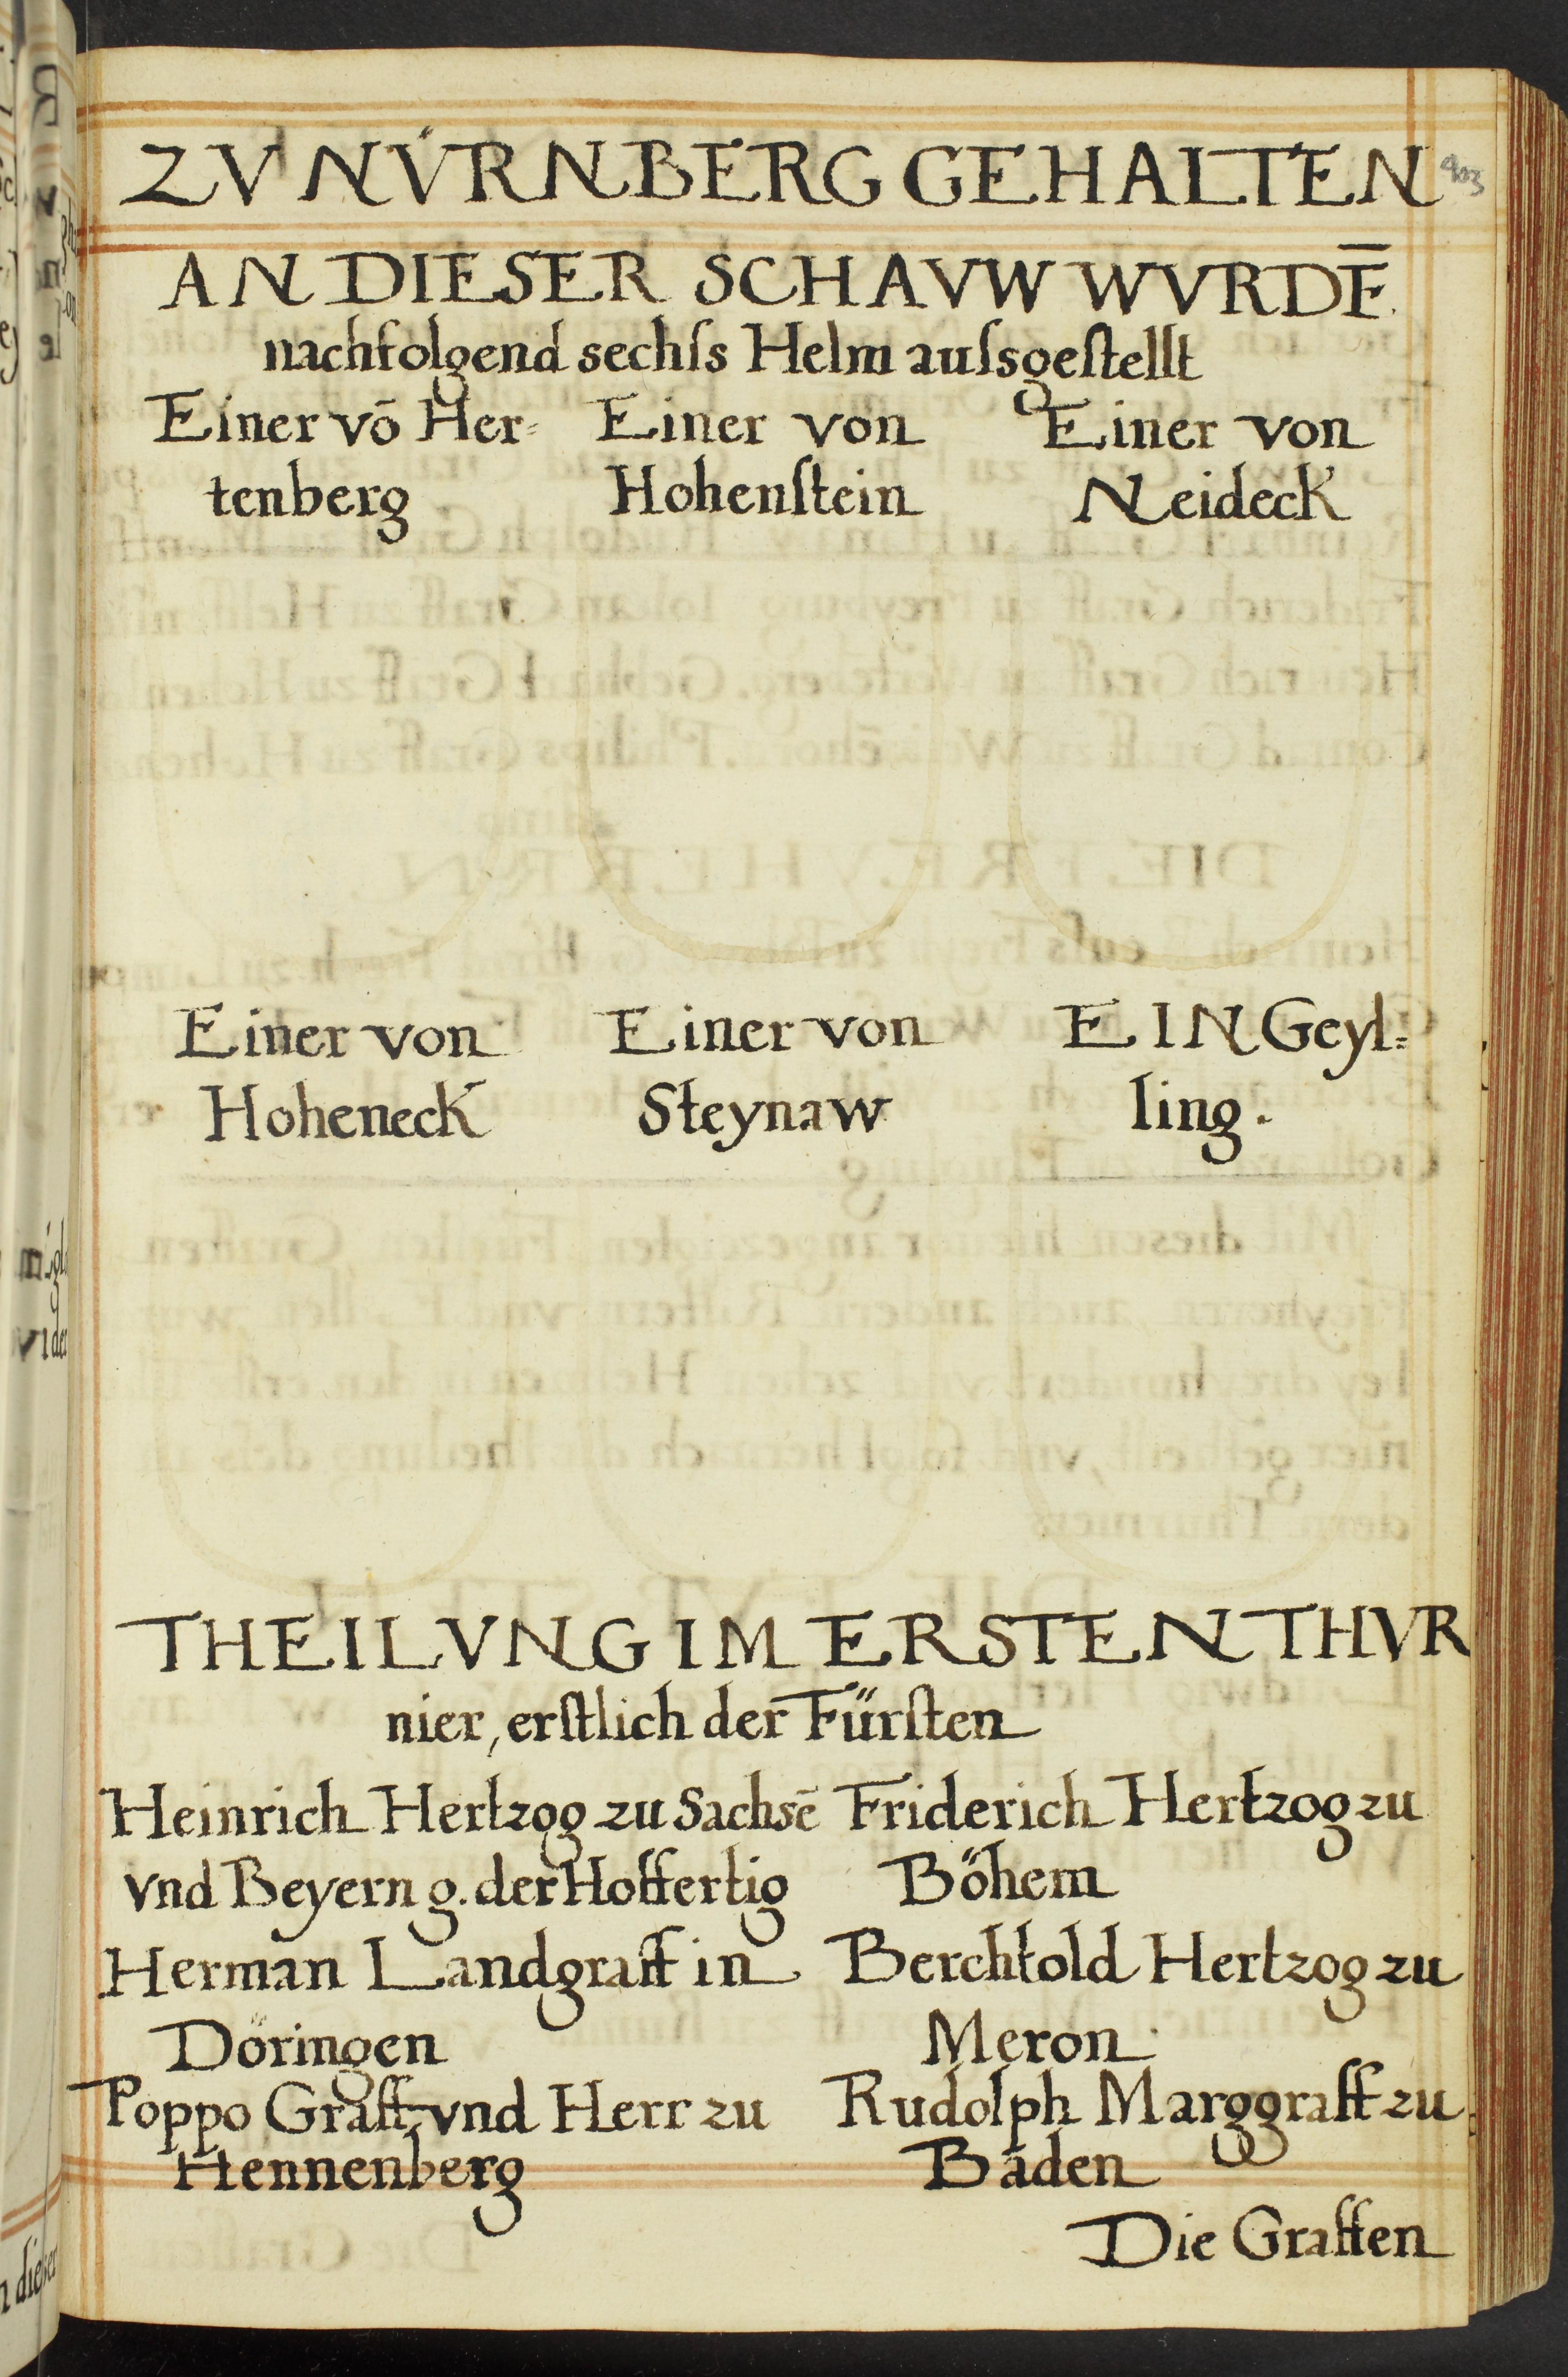 ZV NV́RNBERG GEHALTEN
403
AN DIESER SCHAVW WVRDĒ.
nachfolgend sechſs Helm auſsgeſtellt
Einer vō Her=
tenberg
Einer von
Hohenſtein
Einer von
Neideck
Einer von
Hoheneck
Einer von
Steynaw
EIN Geyl=
ling.
THEILVNG IM ERSTEN THVR
nier, erſtlich der Fürſten
Heinrich Hertzog zu Sachsē
vnd Beyern g. der Hoffertig
Friderich Hertzog zu
Böhem
Herman Landgraff in
Döringen
Berchtold Hertzog zu
Meron
Poppo Graff vnd Herr zu
Hennenberg
Rudolph Marggraff zu
Baden
Die Graffen